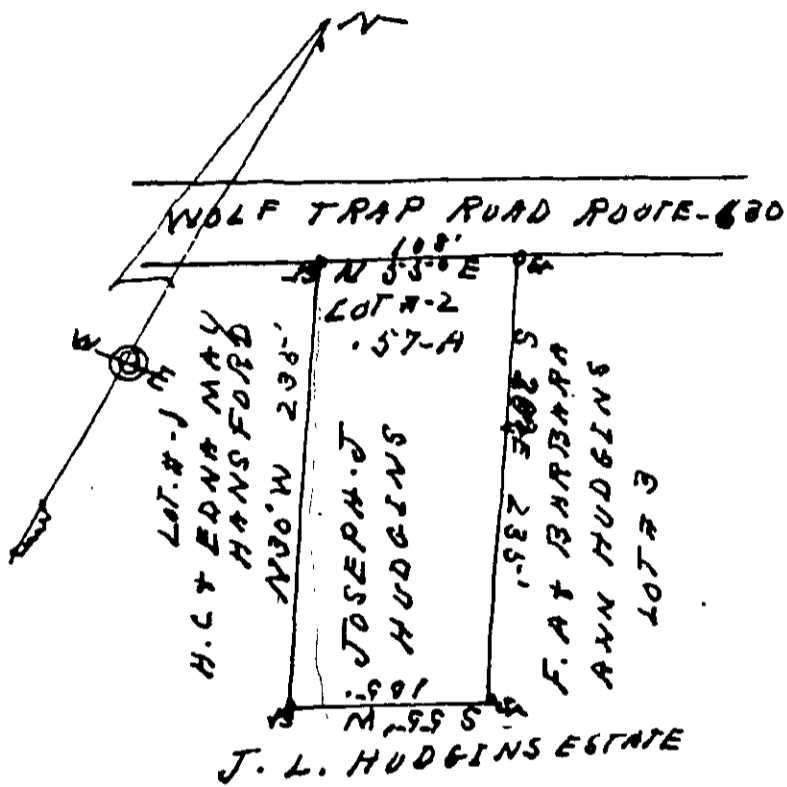 N
WOLF TRAP ROAD ROUTE-630
108'
B N 55-° E
LOT #-2
.57-A
W
E
LOT.#-1
H.C & EDNA MAY
HANSFORD
N30°W 235-'
JOSEPH.J
HUDGINS
235-'
F. A & BARBARA
ANN HUDGINS
LOT # 3
105-'
S 55-° W
B
J. L. HUDGINS ESTATE